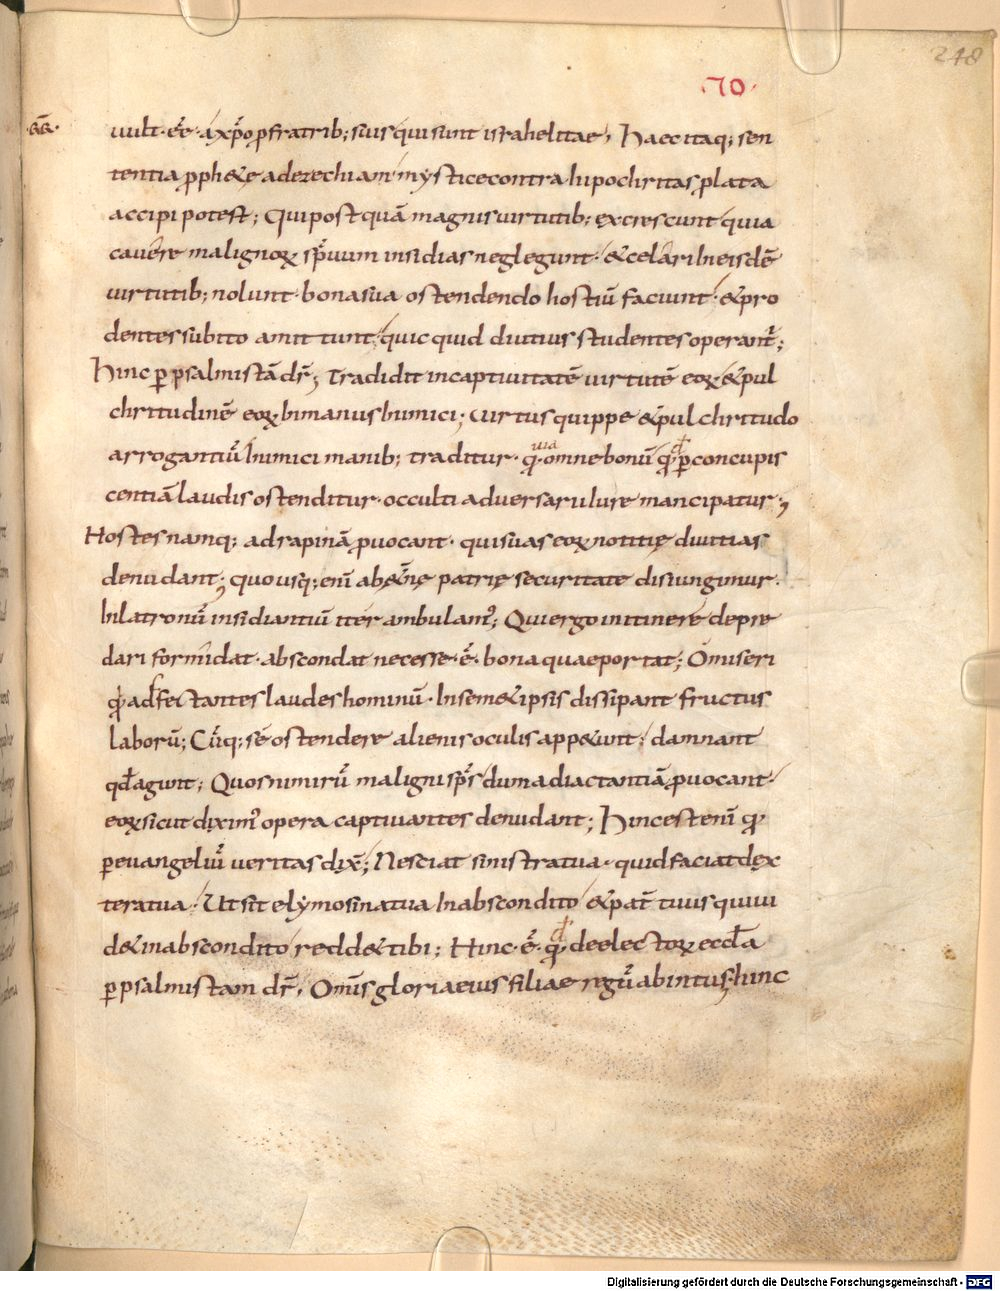 248
·70·
uult· ee̅· a xp̅o p̱ fratrib; suis qui sunt israhelitae, Haec itaq; sen
tentia p̱phetę ad ezechiam mystice contra hipochritas p̱lata
accipi potest; Qui postquā magnis uirtutib; excrescunt quia
cauere malignoꝝ sp̅uum insidias neglegunt· & celari In eisdē
uirtutib; nolunt· bona sua ostendendo hostiū faciunt· & pro
dentes subito amittunt, quicquid diutius studentes operant̅;
Hinc ꝑ psalmistā dr̅, Tradidit in captiuitatē uirtutē eoꝝ & pul
chritudinē eoꝝ In manus Inimici; Uirtus quippe & pulchritudo
arrogantiū Inimici manib; traditur· q̅· omne bonū q̅ ꝑ concupis
centiā laudis ostenditur· occulti aduersarii Iure mancipatur,
Hostes namq; ad rapinā p̱uocant· qui suas eoꝝ notitię diuitias
denudant; quo usq; eni̅ ab et̅nę patrię securitate disiungimur·
In latronū insidiantiū iter ambulam̅; Qui ergo in itinere depre
dari formidat· abscondat necesse· ē· bona quae portat; O miseri
q̅ adfectantes laudes hominū· In semet ipsis dissipant fructus
laborū; Cūq; sē ostendere alienis oculis appetunt; damnant
qd̅ agunt; Quos nimirū maligni sp̅s dum ad iactantiā p̱uocant·
eoꝝ sicut dixim̅ opera captiuantes denudant; Hinc est eni̅ q̅
ꝑ euangeliū ueritas dix̅; Nesciat sinistra tua· quid faciat dex
tera tua· Ut sit elymosina tua In abscondito & pat̅ tuus qui ui
det in abscondito reddet tibi; Hinc· ē· q̅ de electoꝝ eccl̅a
ꝑ psalmistam dr̅, Omīs gloria eius filiae regū ab intus, hinc
Digitalisierung gefördert durch die Deutsche Forschungsgemeinschaft - DFG